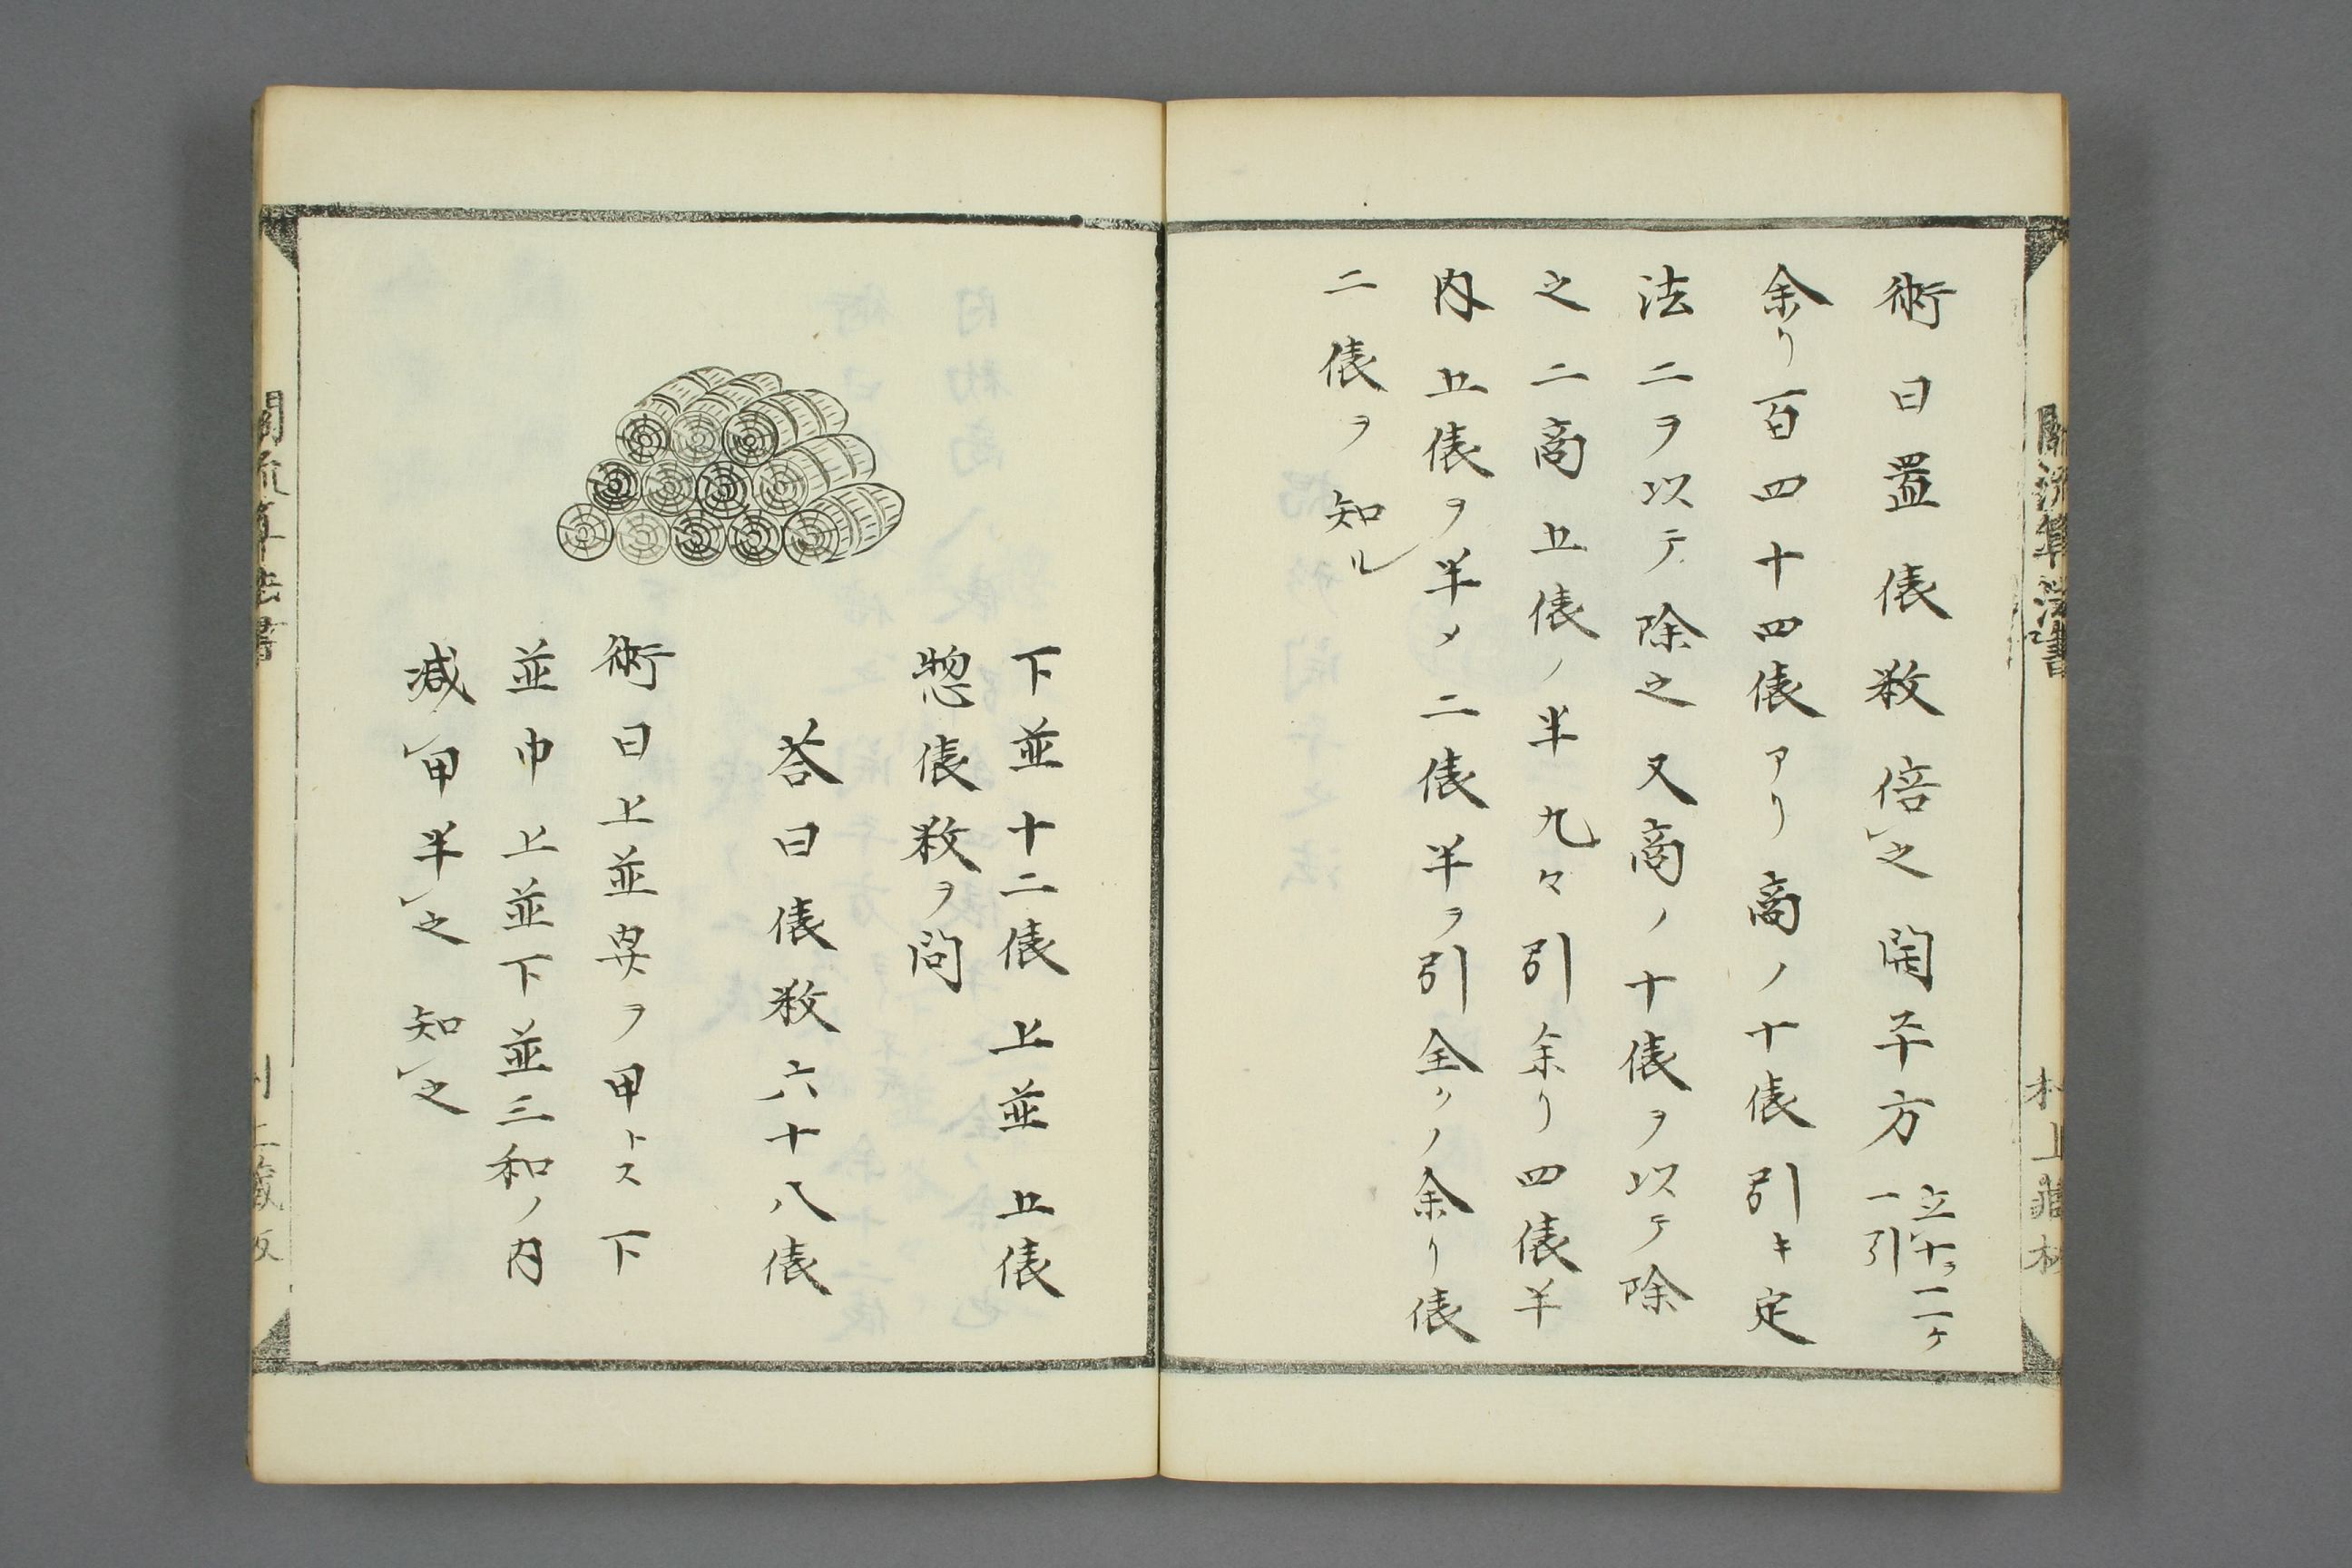 術曰置俵数倍之開平方立十ヲ二ケ一引
余リ百四十四俵アリ商ノ十俵引キ定
法二ヲ以テ除之又商ノ十俵ヲ以テ除
之二商五俵ノ半九々引余リ四俵半
内五俵ヲ半メ二俵半ヲ引全クノ余リ俵
二俵ヲ知ル
下並十二俵上並五俵
惣俵数ヲ問
答曰俵数六十八俵
術曰上並巾ヲ甲トス下
並巾上並下並三和ノ内
減甲半之知之
關流算法書